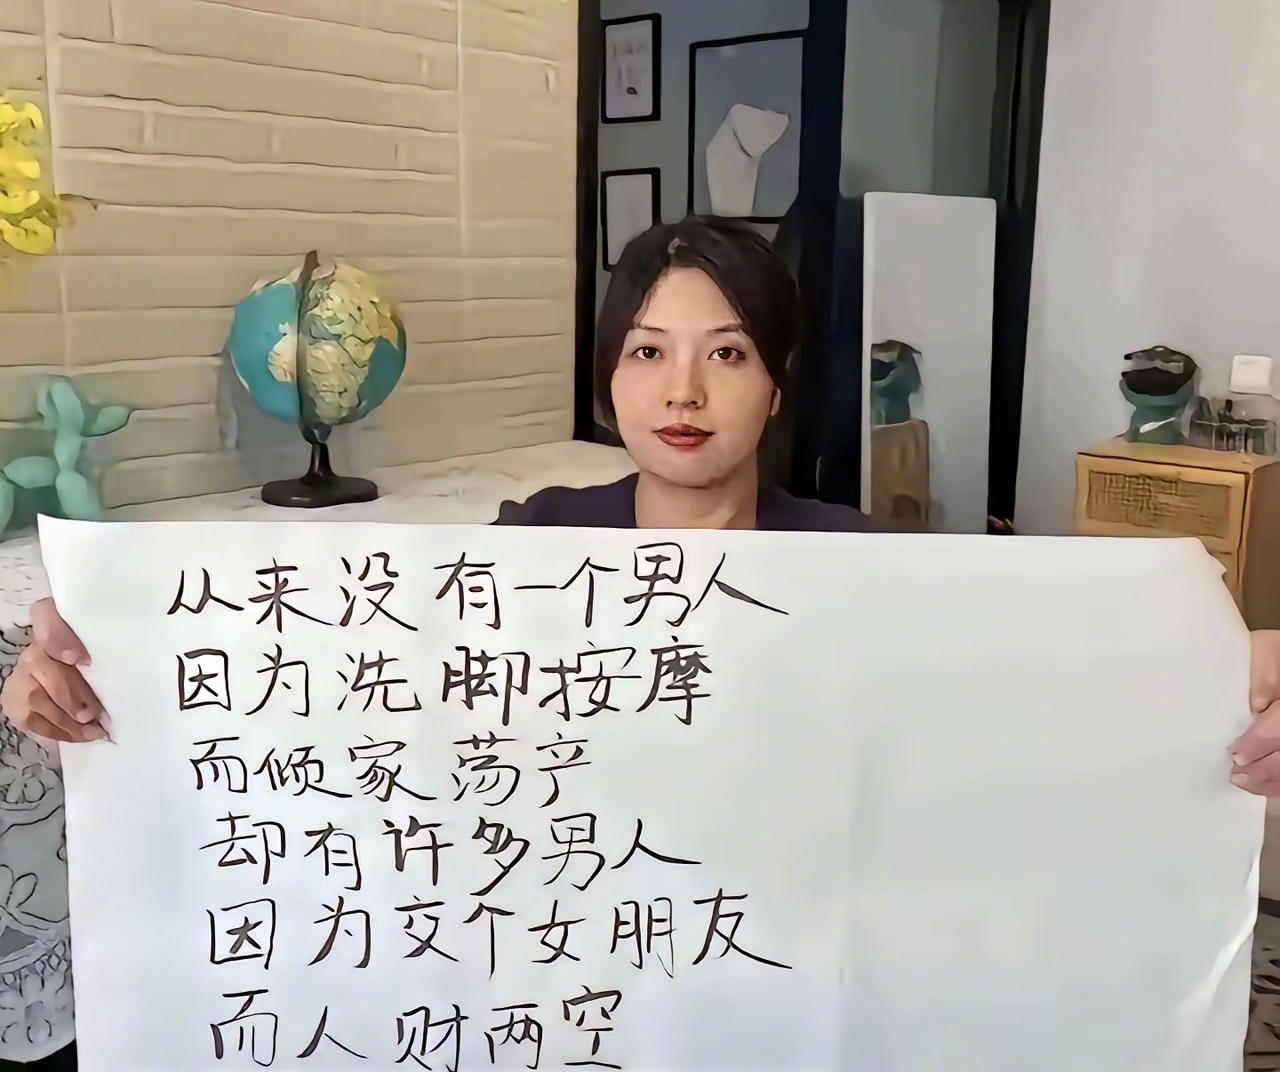 从来没有一个男人
因为洗脚按摩
而倾家荡产
却有许多男人
因为交个女朋友
而人财两空